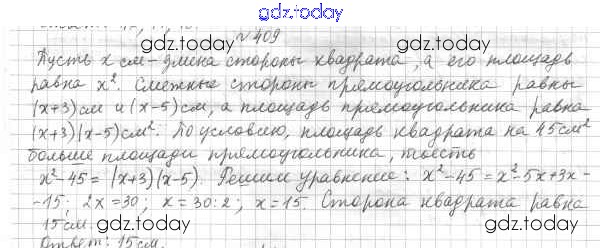 gdz.today
№ 409
gdz.today gdz.today
Пусть x см - длина стороны квадрата, а его площадь
равна x². Смежные стороны прямоугольника равны
(x+3)см и (x-5)см, а площадь прямоугольника равна
(x+3)(x-5)см². По условию, площадь квадрата на 45см²
больше площади прямоугольника, тоесть
gdz.today gdz.today
x²-45=(x+3)(x-5). Решим уравнение: x²-45=x²-5x+3x-
-15; 2x=30; x=30:2; x=15. Сторона квадрата равна
15см.
gdz.today gdz.today
Ответ: 15см.